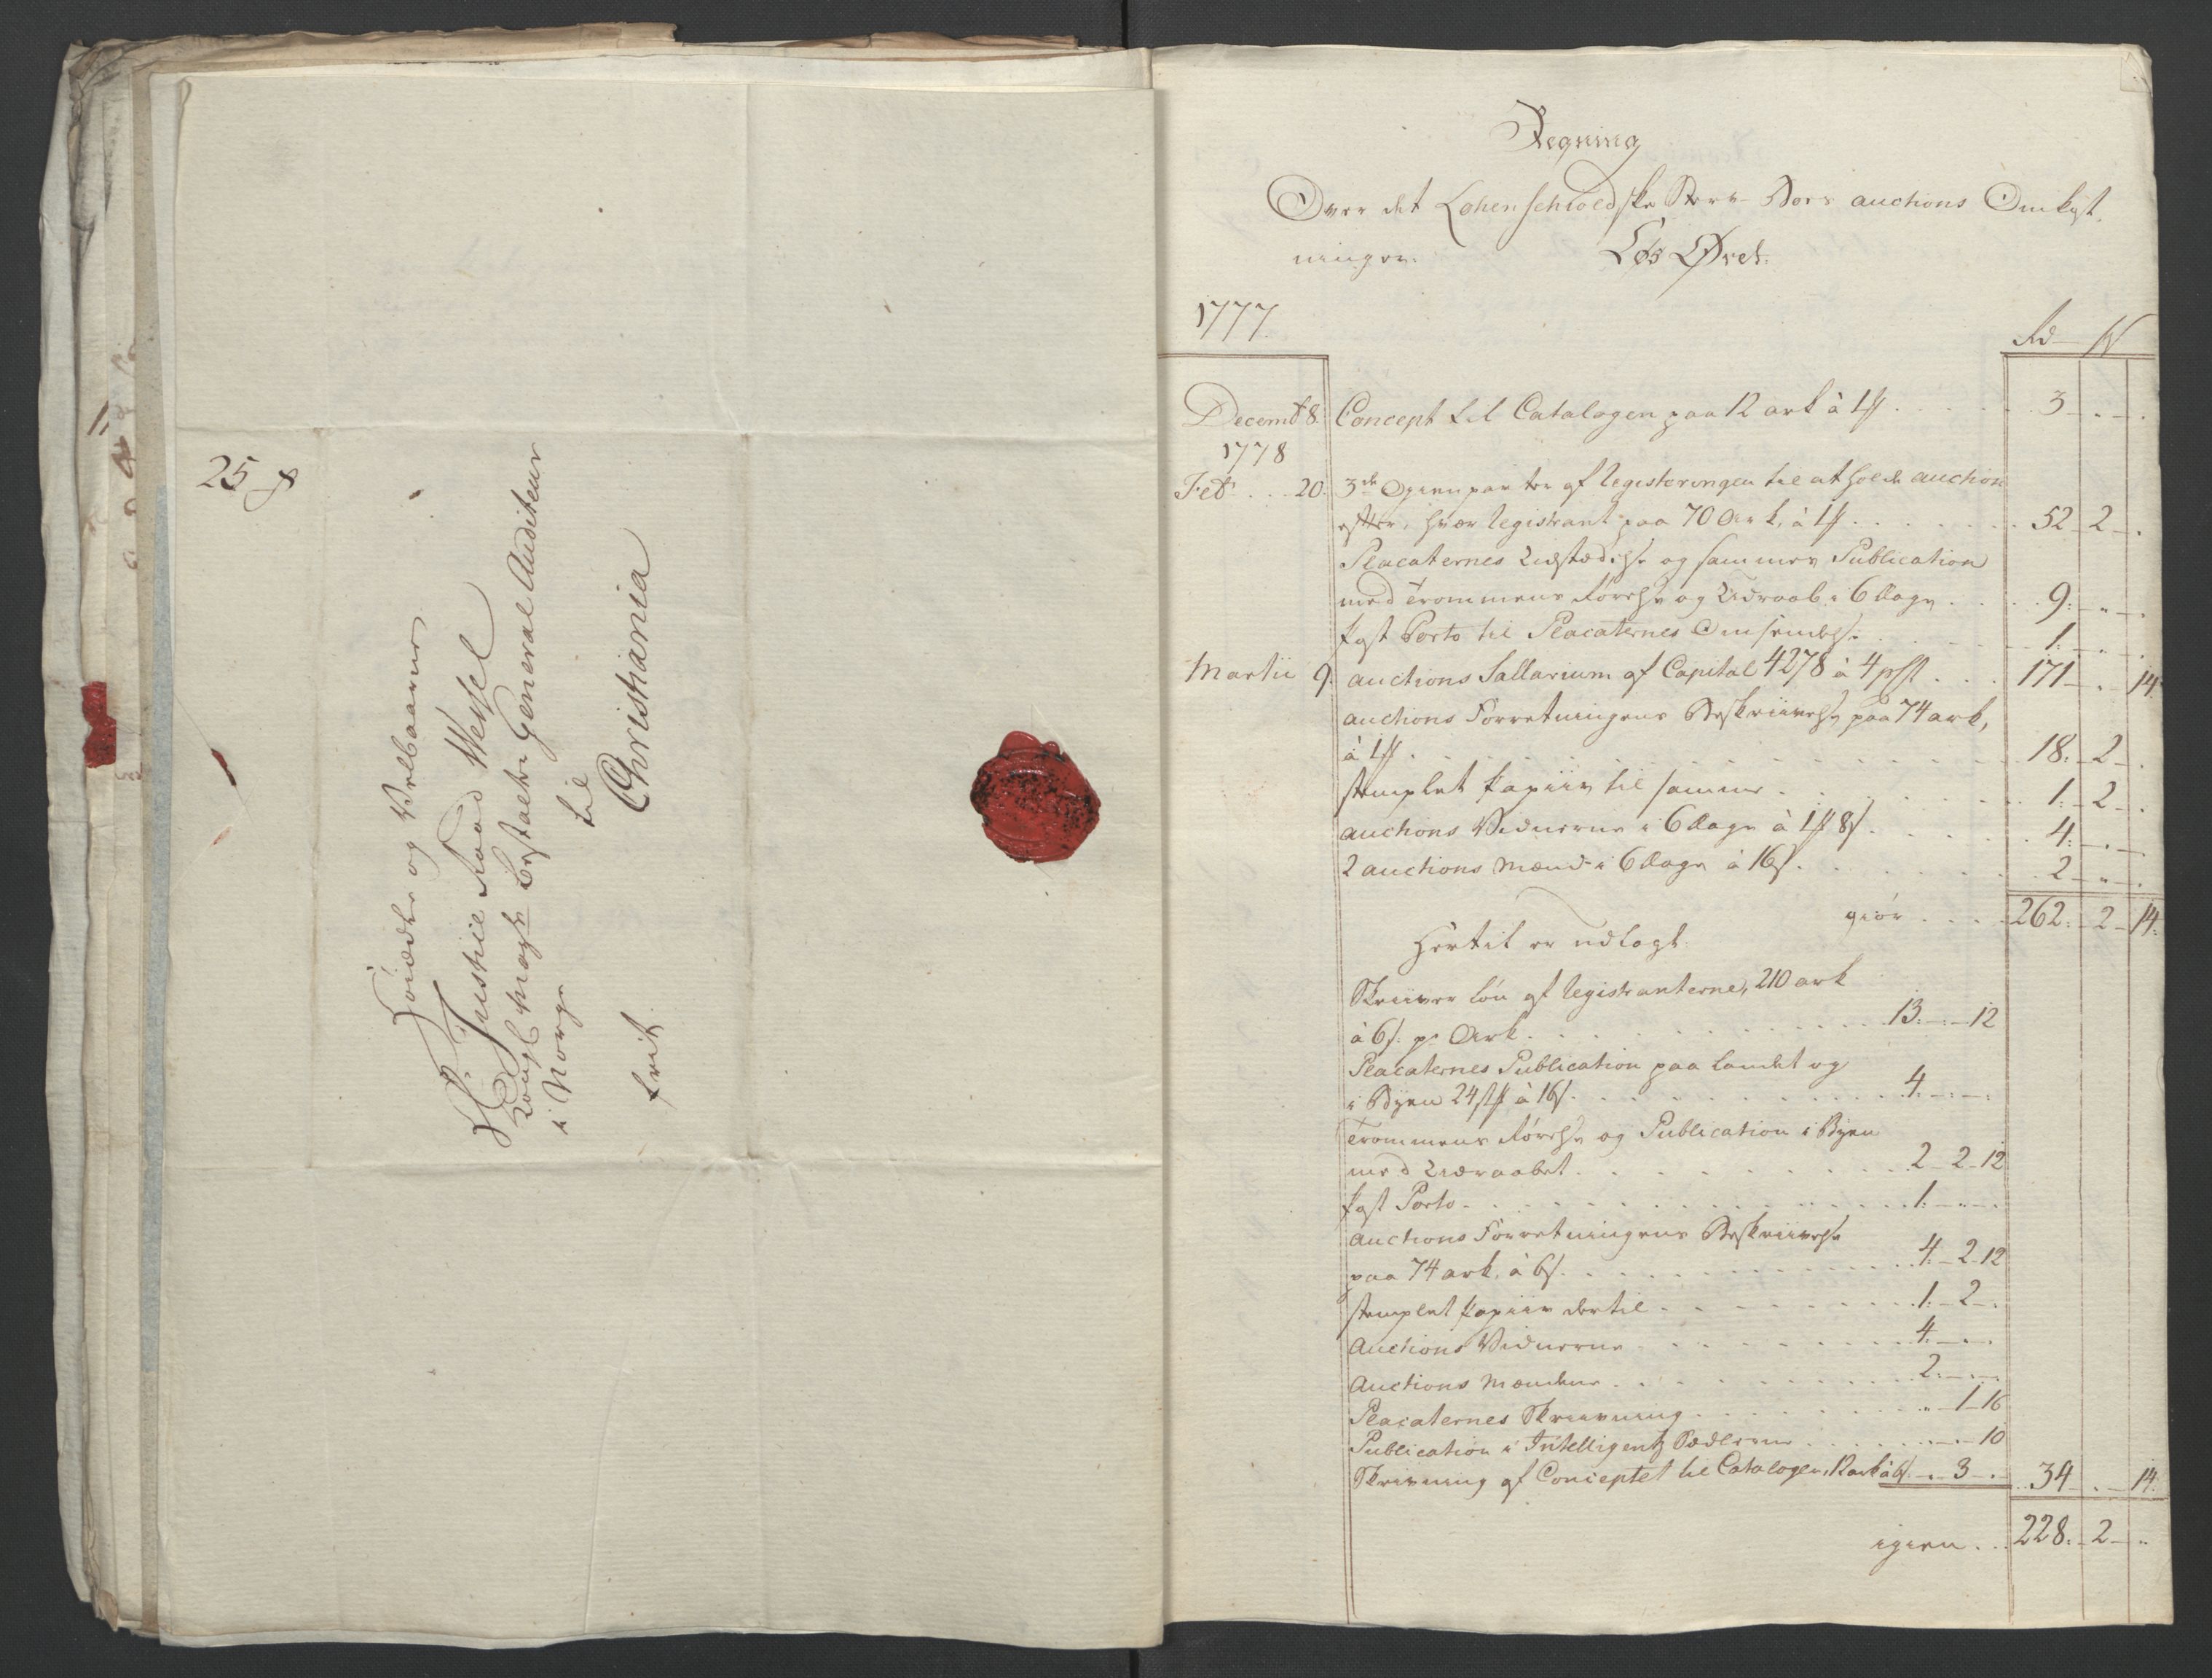 25 ß
Höiædle og Velbaarne
Hr. Justice Raad Wessel
Kongl. Mays. bestalte General Auditeur
i Norge
til
Christiania
frit.
Regning
Over det Løhenschioldske Sterv-Boes auctions Omkost-
ninger. Løs Øret.
1777.
Rd ₰
Decembr 8. Concept til Catalogen paa 12 ark à 1 ₰ . . . 3 - " - "
1778
Febr. . . 20. 3de Gienparter af Registeringen til at holde auction
efter, hver Registrant paa 70 Ark, à 1 ₰ . . . 52 - 2 - "
Placaternes Udstædelse og sammes Publication
med Trommens Rørelse og Udraab i 6 Dage . . . 9 - " - "
Post Porto til Placaternes Omsendelse . . . 1 - " - "
Martii 9. auctions Sallarium af Capital 4278 à 4 pCt . . . 171 - " - 14.
auctions Forretningens Beskrivelse paa 74 ark,
à 1 ₰ . . . 18 - 2 - "
stemplet Papiir til samme . . . 1 - 2 - "
auctions Vidnerne i 6 Dage à 1 ₰ 8 ß . . . 4 - " - "
2 auctions Mænd i 6 Dage à 16 ß . . . 2 - " - "
giør . . . 262 - 2 - 14.
Hertil er udlagt
Skriver Løn af Registranterne, 210 ark
à 6 ß pr Ark . . . 13 - " - 12
Placaternes Publication paa Landet og
i Byen 24 stk à 16 ß . . . 4 - " - "
Trommens Rørelse og Publication i Byen
med Udraabet . . . 2 - 2 - 12
Post Porto . . . 1 - " - "
Auctions Forretningens Beskrivelse
paa 74 ark, à 6 ß . . . 4 - 2 - 12
stemplet Papiir dertil . . . 1 - 2 - "
Auctions Vidnerne . . . 4 - " - "
Auctions Mændene . . . 2 - " - "
Placaternes Skrivning . . . " - 1 - 16
Publication i Intelligentz Sædlerne . . . " - " - 10
Skrivning af Conceptet til Catalogen, 12 ark à 6 ß . . " - 3 - " . . 34 - " - 14.
igien . . . 228 - 2 - "